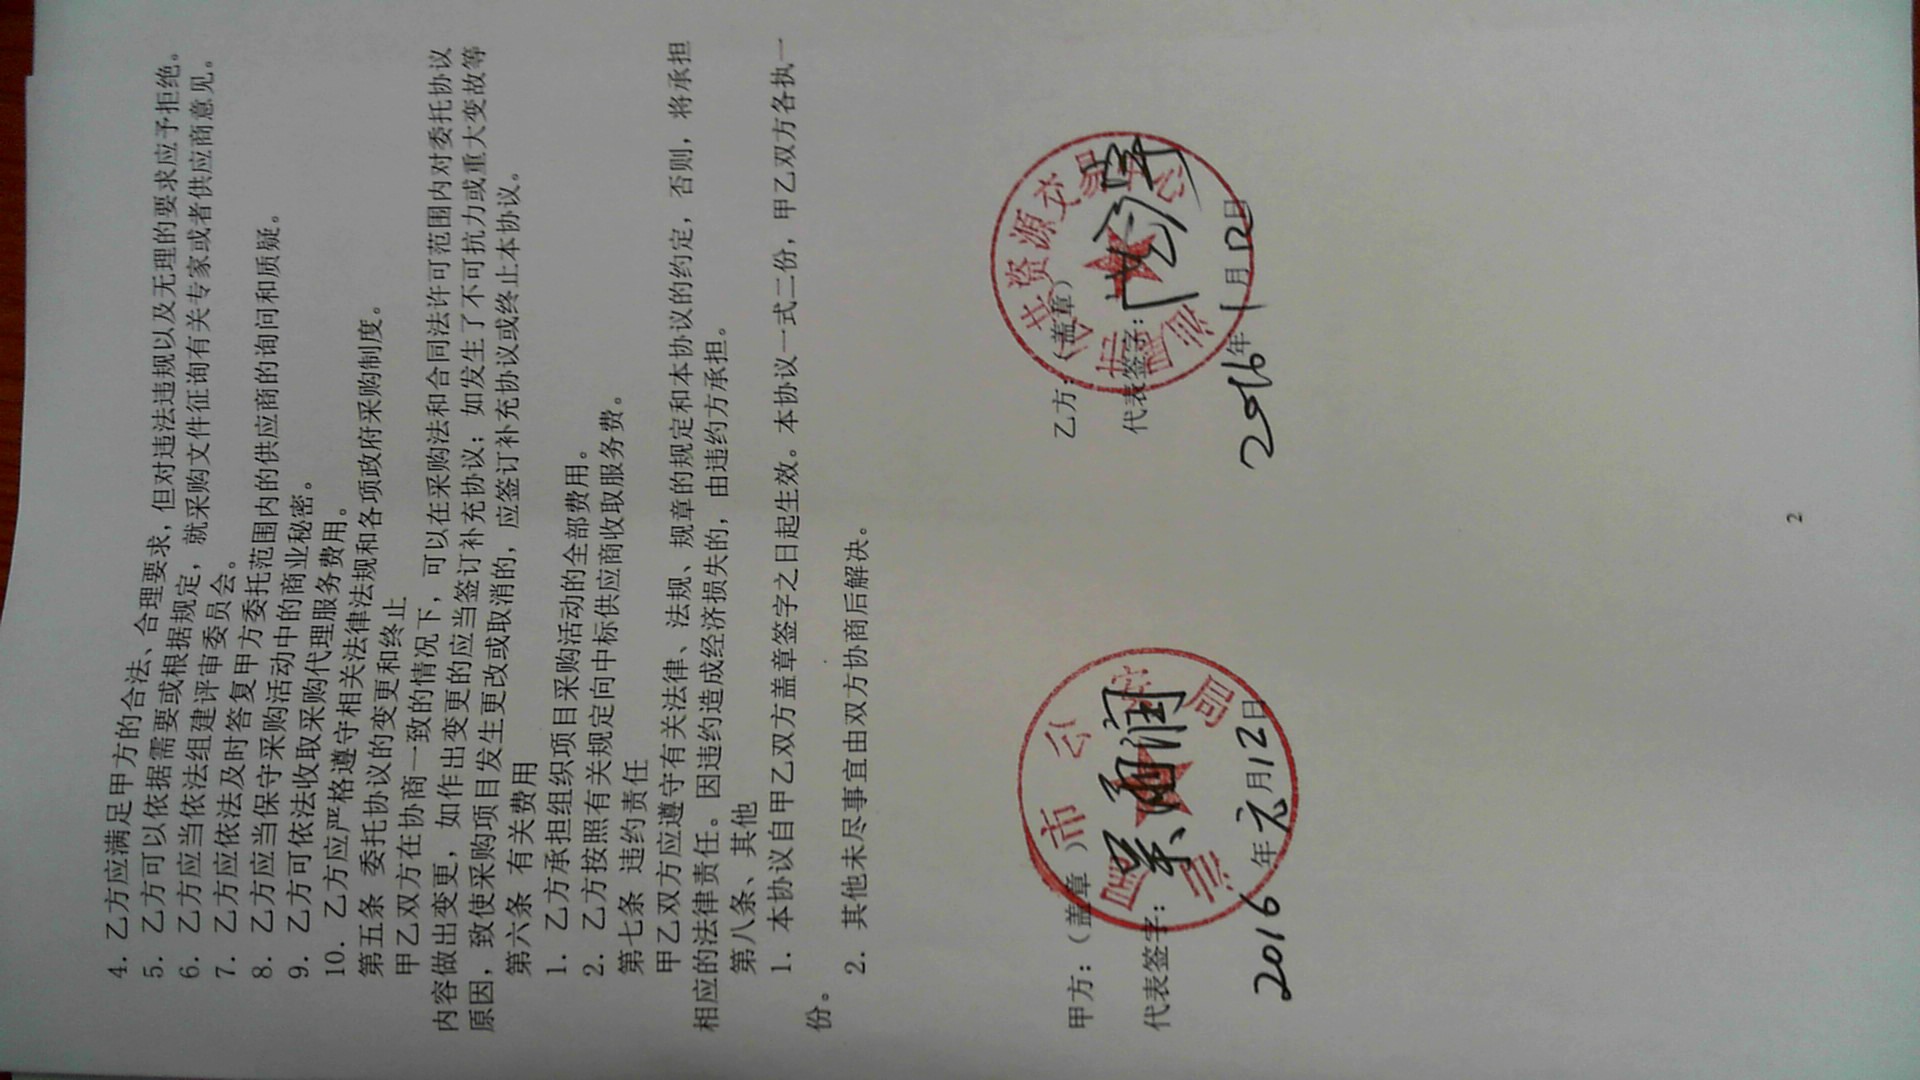 4. 乙方应满足甲方的合法、合理要求，但对违法违规以及无理的要求应予拒绝。
5. 乙方可以依据需要或根据规定，就采购文件征询有关专家或者供应商意见。
6. 乙方应当依法组建评审委员会。
7. 乙方应依法及时答复甲方委托范围内的供应商的询问和质疑。
8. 乙方应当保守采购活动中的商业秘密。
9. 乙方可依法收取采购代理服务费用。
10. 乙方应严格遵守相关法律法规和各项政府采购制度。
第五条 委托协议的变更和终止
甲乙双方在协商一致的情况下，可以在采购法和合同法许可范围内对委托协议
内容做出变更，如作出变更的应当签订补充协议；如发生了不可抗力或重大变故等
原因，致使采购项目发生更改或取消的，应签订补充协议或终止本协议。
第六条 有关费用
1. 乙方承担组织项目采购活动的全部费用。
2. 乙方按照有关规定向中标供应商收取服务费。
第七条 违约责任
甲乙双方应遵守有关法律、法规、规章的规定和本协议的约定，否则，将承担
相应的法律责任。因违约造成经济损失的，由违约方承担。
第八条、其他
1. 本协议自甲乙双方盖章签字之日起生效。本协议一式二份，甲乙双方各执一
份。
2. 其他未尽事宜由双方协商后解决。
甲方：（盖章）
市公安局
代表签字：
2016年元月12日
乙方：（盖章）
公共资源交易中心
代表签字：
2016年1月12日
2